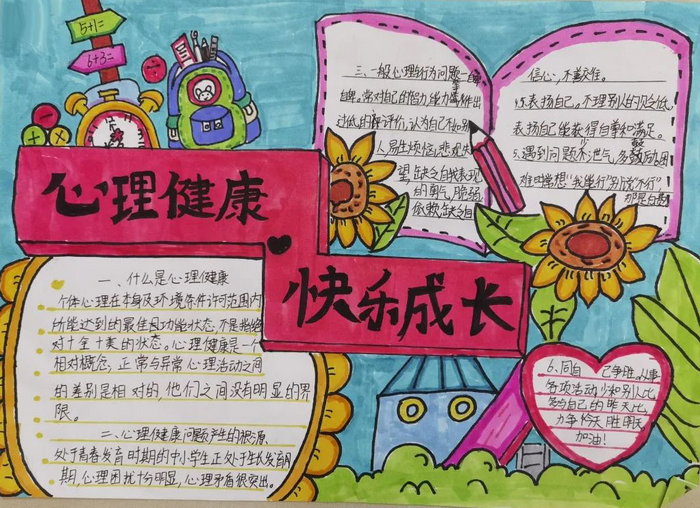 5+1=
6+3=
心理健康
快乐成长
一、什么是心理健康
个体心理在本身及环境条件许可范围内
所能达到的最佳功能状态,不是指绝
对十全十美的状态。心理健康是一个
相对概念,正常与异常心理活动之间
的差别是相对的,他们之间没有明显的界
限。
二、心理健康问题产生的根源
处于青春发育时期的中小学生正处于生长发育期
期,心理困扰十分明显,心理矛盾很突出。
三、一般心理行为问题
自卑。常对自己的智力、能力等作出
过低的评价,认为自己不如别
人,易生烦恼,悲观失
望,缺乏自我表现
的勇气,脆弱
依赖,缺乏自
信心,不善交往。
表扬自己,不理别人的贬低,
表扬自己能获得自尊和满足。
5.遇到问题不泄气,多鼓励,困
难时常想“我能行”别说“不行”
6、同自己争胜。从事
各项活动少和别人比,
多与自己的昨天比,
力争今天胜昨天
加油!